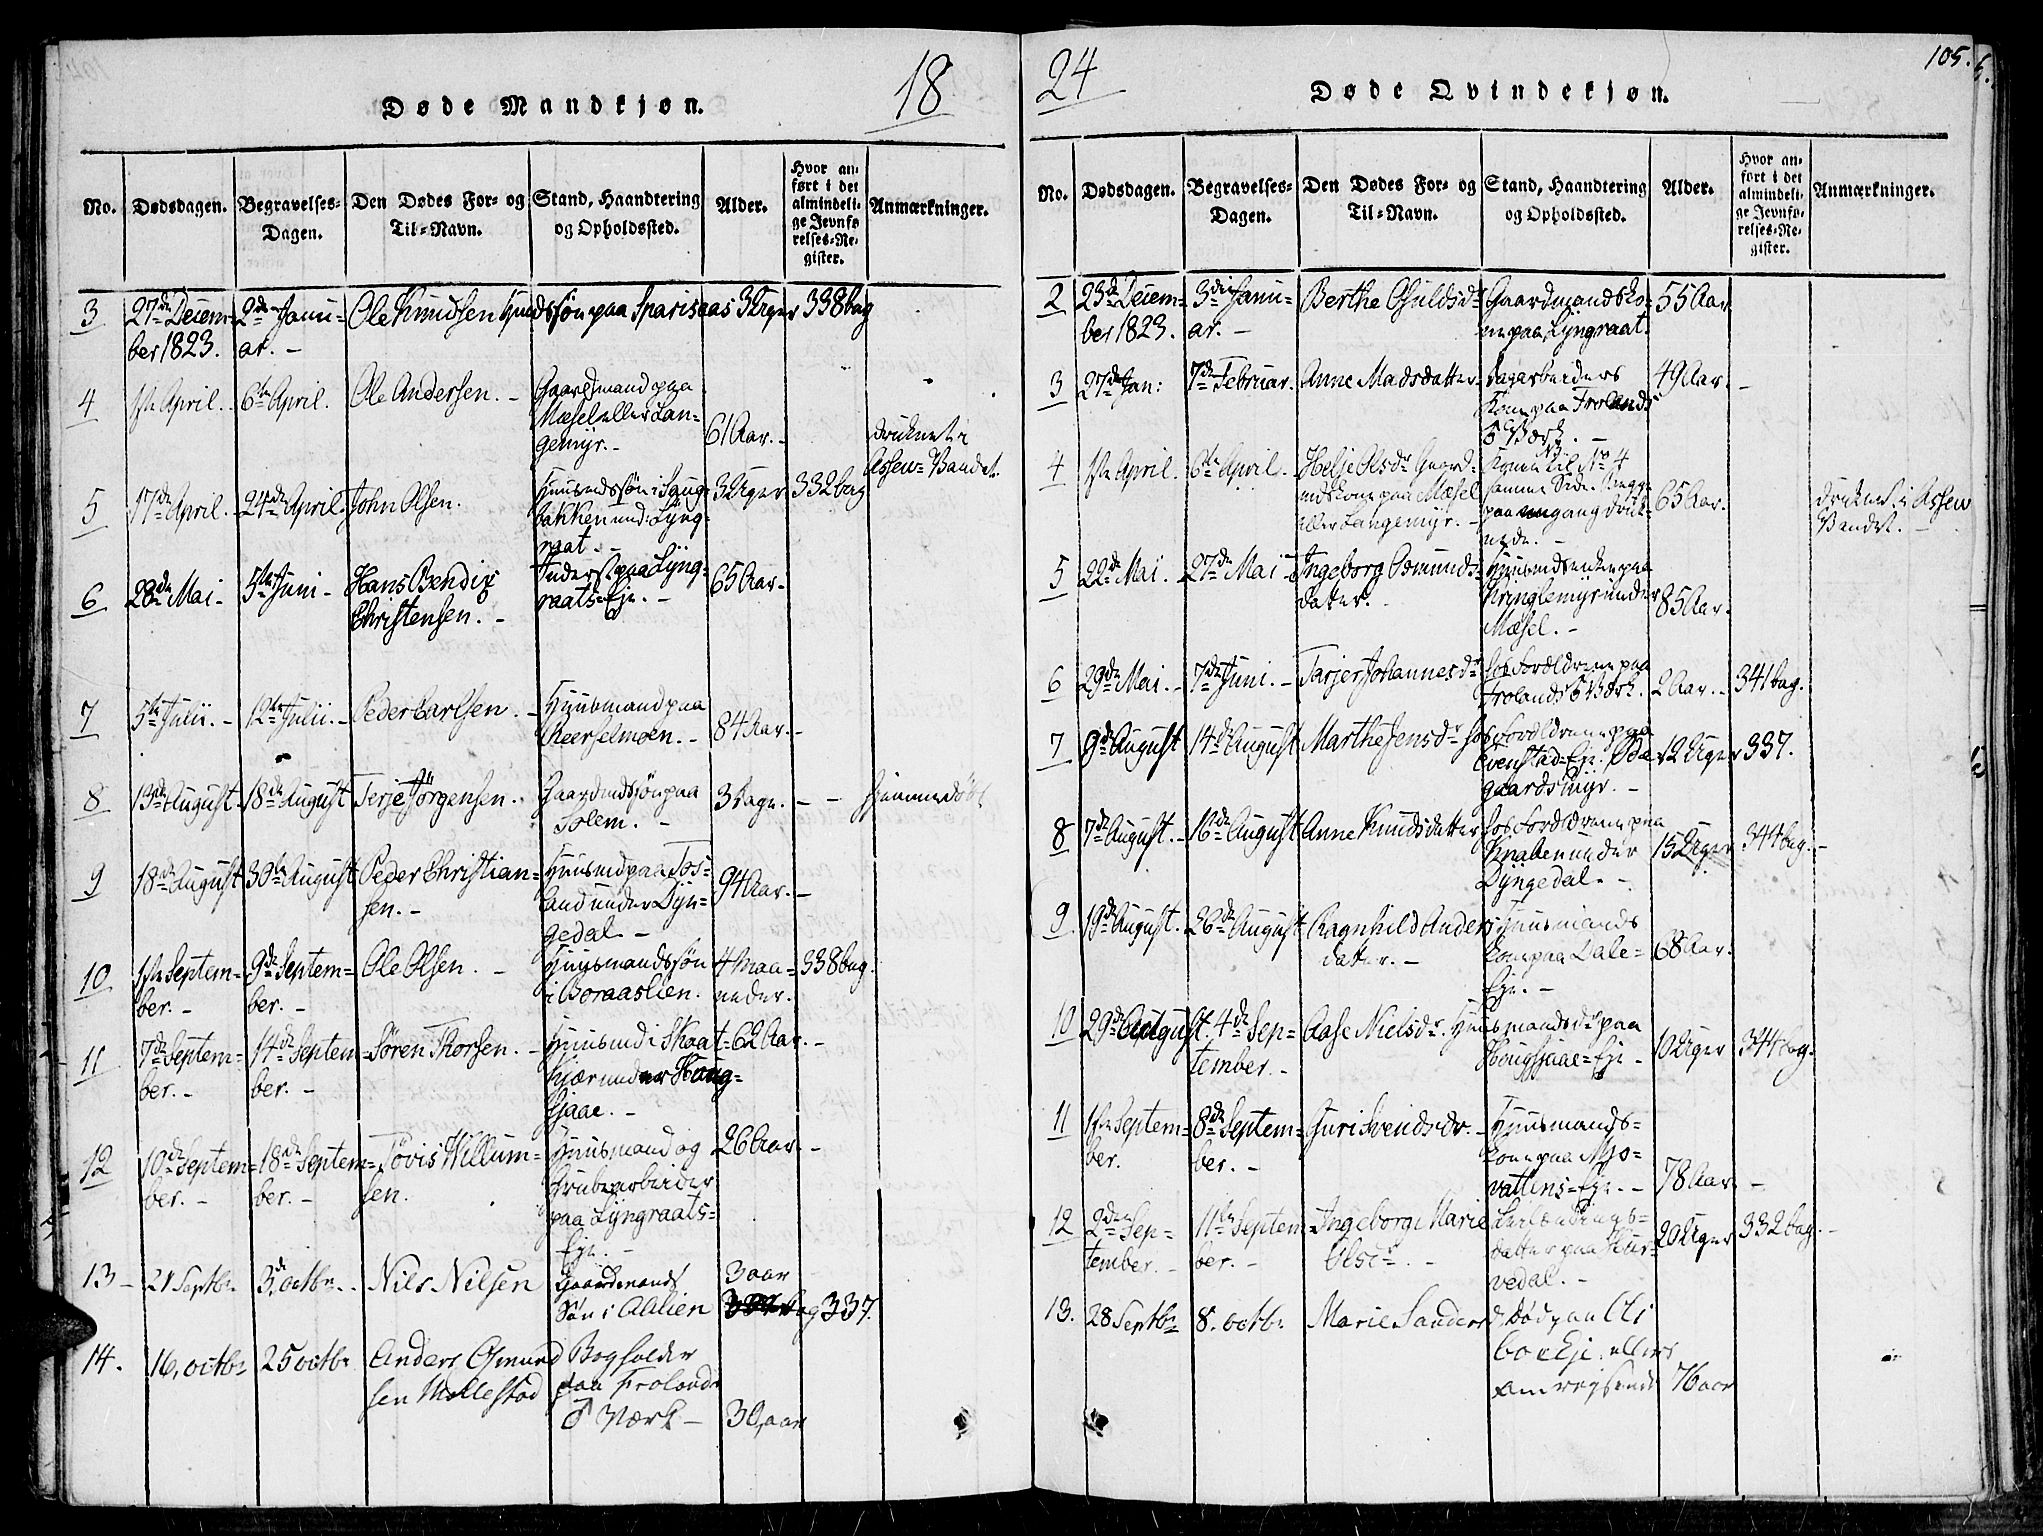 18
Døde Mandkjøn.
No.
Dødsdagen.
Begravelses-
Dagen.
Den Dødes For- og
Til-Navn.
Stand, Haandtering
og Opholdssted.
Alder.
Hvor an-
ført i det
almindeli-
ge Jevnfø-
relses-Re-
gister.
Anmærkninger.
3
27de Decem-
ber 1823.
2den Janu-
ar. -
Ole Knudsen
Huusmdssøn paa Sparisaas
3 Uger
338 bag
4
1ste April.
6te April.
Ole Andersen. -
Gaardmand paa
Mæsel eller Lan-
gemyr. -
61 Aar. -
druknet i
Assew-Vandet.
5
17de April.
24de April.
John Olsen.
Huusmdssøn i
bakken und: Lyng-
raat. -
3 Uger
332 bag
6
28de Mai.
5te Juni -
Hans Bendix
Christensen. -
Inderst paa Lyng-
raats-Eje. -
65 Aar. -
7
5te Julii. -
12te Julii. -
Peder Carlsen. -
Huusmand paa
Reerselmoen. -
84 Aar. -
8
13de August.
18de August
Terje Jørgensen.
Gaardmdssøn paa
Solem. -
3 Dage. -
hjemmedøbt
9
18de August
30te August
Peder Christian-
sen. -
Huusmd paa Tos-
land under Dyn-
gedal. -
94 Aar. -
10
1ste Septem-
ber. -
9de Septem-
ber. -
Ole Olsen. -
Huusmandssøn
i Boraaslien.
4 Maa-
neder.
338 bag.
11
7de Septem-
ber. -
14de Septem-
ber. -
Søren Thorsen. -
Huusmd i Skaat-
kjær under Haug-
sjaae. -
62 Aar. -
12
10de Septem-
ber. -
18de Septem-
ber. -
Tovis Willum-
sen.
Huusmand og
Grubearbeider
paa Lyngraats-
Eje. -
26 Aar. -
13 -
21 Septbr
3de octbr. -
Nils Nilsen
Gaardmands
Søn i Aalien
3 aar
337.
14.
16, octbr
25 octbr
Anders Osmund
sen Mollestad
Bogholder
paa Frolands
♂ Værk -
30, aar
24
105.
Døde Qvindekjøn.
No.
Dødsdagen.
Begravelses-
Dagen.
Den Dødes For- og
Til-Navn.
Stand, Haandtering
og Opholdssted.
Alder.
Hvor an-
ført i det
almindeli-
ge Jevnfø-
relses-Re-
gister.
Anmærkninger.
2
23de Decem-
ber 1823.
3die Janu-
ar. -
Berthe Osuldsdr
Gaardmandsko-
ne paa Lyngraat.
55 Aar
3
27de Jan:
7de Februar.
Anne Madsdatter
Dagarbeiders
Kone paa Frolands
♂ Værk. -
49 Aar. -
4
1ste April.
6te April.
Helje Olsdr Gaard-
mdskone paa Mæsel
eller Langemyr. -
Kone til No 4
samme Side. Begge
paa engang druk-
nede. -
65 Aar.
druknet i Assew
Vandet. -
5
22de Mai.
27de Mai -
Ingeborg Osmunds-
datter.
Huusmdsenke paa
Kringlemyr under
Mæsel. -
85 Aar.
6
29de Mai. -
7de Juni. -
Tarjer Johannesdr
hos Forældrene paa
Frolands ♂ Værk.
2 Aar. -
341 bag.
7
9de August
14de August
Marthe Jensdr
hos Forældrene paa
Evenstad-Eje.
gaardsmyr. -
12 Uger
337.
8
7de August. -
16de August
Anne Knudsdatter
hos Forældrene paa
Knaben under
Dyngedal. -
15 Uger
344 bag. -
9.
19de August.
26de August
Ragnhild Anders
datter. -
Huusmands
kone paa Dale-
Eje. -
68 Aar.
10
29de August.
4de Sep-
tember. -
Aase Nielsdr.
Huusmandsdr paa
Hougsjaae-Eje -
10 Uger
344 bag.
11
1ste Septem-
ber.
8de Septem-
ber. -
Guri Svendsdr. -
Huusmands-
kone paa Mjo-
vattens-Eje. -
78 Aar -
12
2den Sep-
tember. -
11te Septem-
ber. -
Ingeborg Marie
Olsdr. -
datter paa
vedal. -
20 Uger
332 bag. -
13.
28 Septbr
8. octbr
Marie Sanders
d. Død paa Bli
boe Eje. ellers
omreisende
76 aar